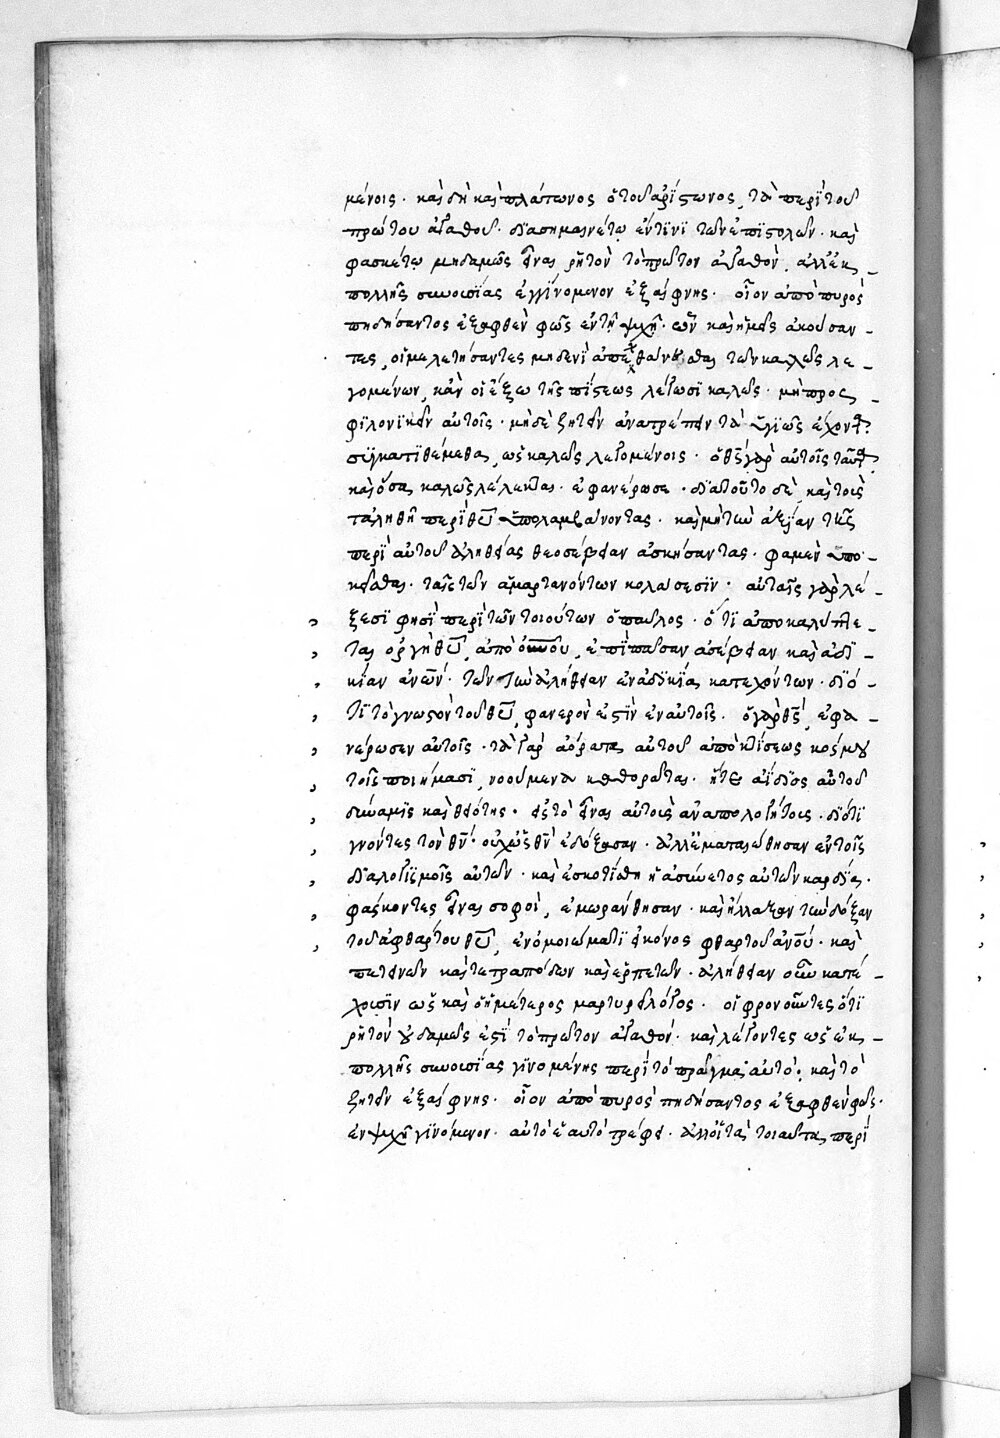 μένοις. καὶ δὴ καὶ πλάτωνος ὁ τοῦ ἀρίστωνος, τὰ περὶ τοῦ
πρώτου ἀγαθοῦ. διασημαινέτω ἔν τινι τῶν ἐπιστολῶν. καὶ
φασκέτω μηδαμῶς εἶναι ῥητὸν τὸ πρῶτον ἀγαθὸν, ἀλλ' ἐκ
πολλῆς συνουσίας ἐγγινόμενον ἐξαίφνης. οἷον ἀπὸ πυρὸς
πηδήσαντος ἐξαφθὲν φῶς ἐν τῇ ψυχῇ. ὧν καὶ ἡμεῖς ἀκούσαν-
τες, οἱ μελετήσαντες μηδενὶ ἀπεχθάνεσθαι τῶν καλῶς λε-
γομένων, κἂν οἱ ἔξω τῆς πίστεως λέγωσι καλῶς. μὴ προσ-
φιλονικεῖν αὐτοῖς. μηδὲ ζητεῖν ἀνατρέπειν τὰ ὑγιῶς ἔχοντα
συγκατιθέμεθα, ὡς καλῶς λεγομένοις. ὁ θς γὰρ αὐτοῖς ταῦτα
καὶ ὅσα καλῶς λέλεκται. ἐφανέρωσε. διὰ τοῦτο δὲ, καὶ τοὺς
τἀληθῆ περὶ θυ ὑπολαμβάνοντας. καὶ μὴ τὴν ἀξίαν τῆς
περὶ αὐτοῦ ἀληθείας θεοσέβειαν ἀσκήσαντας. φαμὲν ὑπο-
κεῖσθαι. ταῖς τῶν ἁμαρτανόντων κολάσεσιν. αὐταῖς γὰρ λέ-
ξεσί φησὶ περὶ τῶν τοιούτων ὁ παῦλος. ὅτι ἀποκαλύπτε-
ται ὀργὴ θυ, ἀπ' οὐνου, ἐπὶ πᾶσαν ἀσέβειαν καὶ ἀδι-
κίαν ἀνων. τῶν τὴν ἀλήθειαν ἐν ἀδικίᾳ κατεχόντων. διό-
τι τὸ γνωστὸν τοῦ θυ, φανερὸν ἐστὶν ἐν αὐτοῖς. ὁ γὰρ θς, ἐφα-
νέρωσεν αὐτοῖς. τὰ γὰρ ἀόρατα αὐτοῦ ἀπὸ κτίσεως κόσμου
τοῖς ποιήμασι, νοούμενα καθορᾶται. ἥτε ἀΐδιος αὐτοῦ
δύναμις καὶ θειότης. εἰς τὸ εἶναι αὐτοὺς ἀναπολογήτους. διότι
γνόντες τὸν θν. οὐχ ὡς θν ἐδόξασαν. ἀλλ' ἐματαιώθησαν ἐν τοῖς
διαλογισμοῖς αὐτῶν. καὶ ἐσκοτίσθη ἡ ἀσύνετος αὐτῶν καρδία.
φάσκοντες εἶναι σοφοὶ, ἐμωράνθησαν. καὶ ἤλλαξαν τὴν δόξαν
τοῦ ἀφθάρτου θυ, ἐν ὁμοιώματι εἰκόνος φθαρτοῦ ἀνου. καὶ
πετεινῶν καὶ τετραπόδων καὶ ἑρπετῶν. ἀλήθειαν οὖν κατέ-
χουσιν ὡς καὶ ὁ ἡμέτερος μαρτυρεῖ λόγος. οἱ φρονοῦντες ὅτι
ῥητὸν οὐδαμῶς ἐστὶ τὸ πρῶτον ἀγαθόν. καὶ λέγοντες ὡς ἐκ
πολλῆς συνουσίας γινομένης περὶ τὸ πρᾶγμα αὐτό. καὶ τὸ
ζητεῖν ἐξαίφνης. οἷον ἀπὸ πυρὸς πηδήσαντος ἐξαφθὲν φῶς.
ἐν ψυχῇ γινόμενον. αὐτὸ ἑαυτὸ τρέφει. ἀλλ' οἱ τὰ τοιαῦτα περὶ